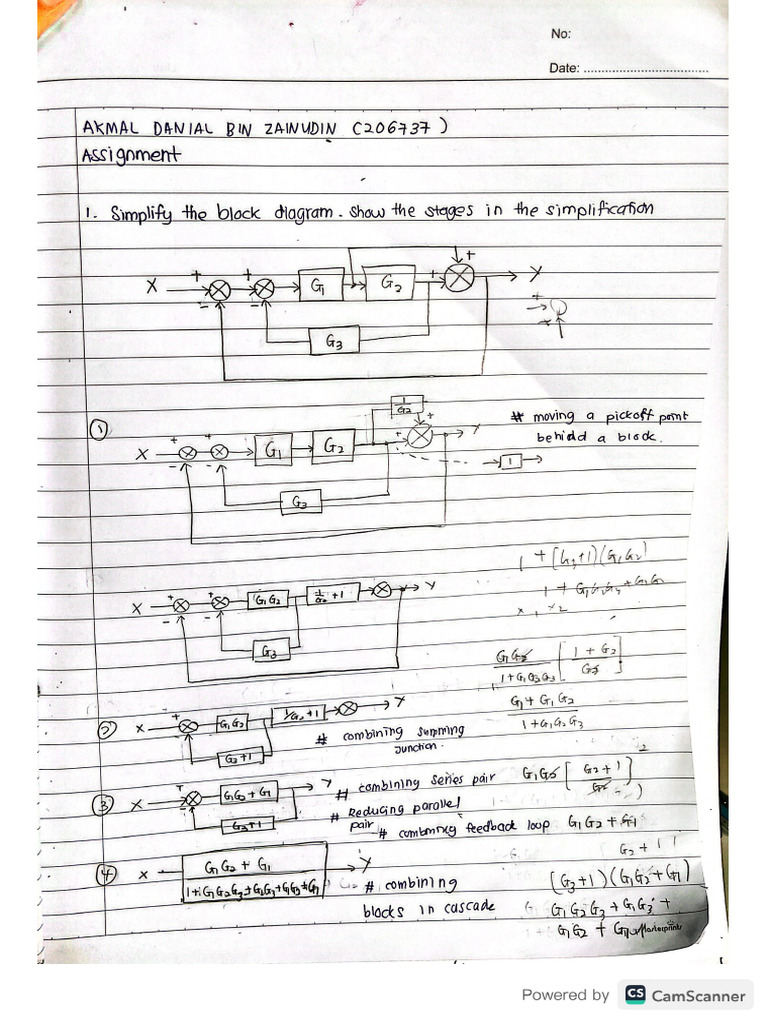 No:
Date: ..................................
AKMAL DANIAL BIN ZAINUDIN (206737)
Assignment
1. Simplify the block diagram. show the stages in the simplification
X + - + - G1 G2 + + Y
G3
①
1/G2
# moving a pickoff point
behind a block.
X + - + - G1 G2 + + Y
1
G3
1 + (G3+1)(G1G2)
X + - + - G1G2 1/G2 +1 Y
G3
G1G2 / 1+G1G2G3 [ 1 + G2 / G2 ]
G1 + G1G2 / 1+G1G2G3
② X + - G1G2 1/G2 +1 Y
G3+1
# combining summing
junction.
③ X + - G1G2 + G1 Y
G3+1
# combining series pair
# Reducing parallel
pair # combining feedback loop
G1G2 [ G2+1 / G2 ]
G1G2 + G1
④ X G1G2 + G1 Y
G2 + 1
# combining
blocks in cascade
(G3+1)(G1G2+G1)
G1G2G3 + G1G3 +
G1G2 + G1
Powered by CS CamScanner